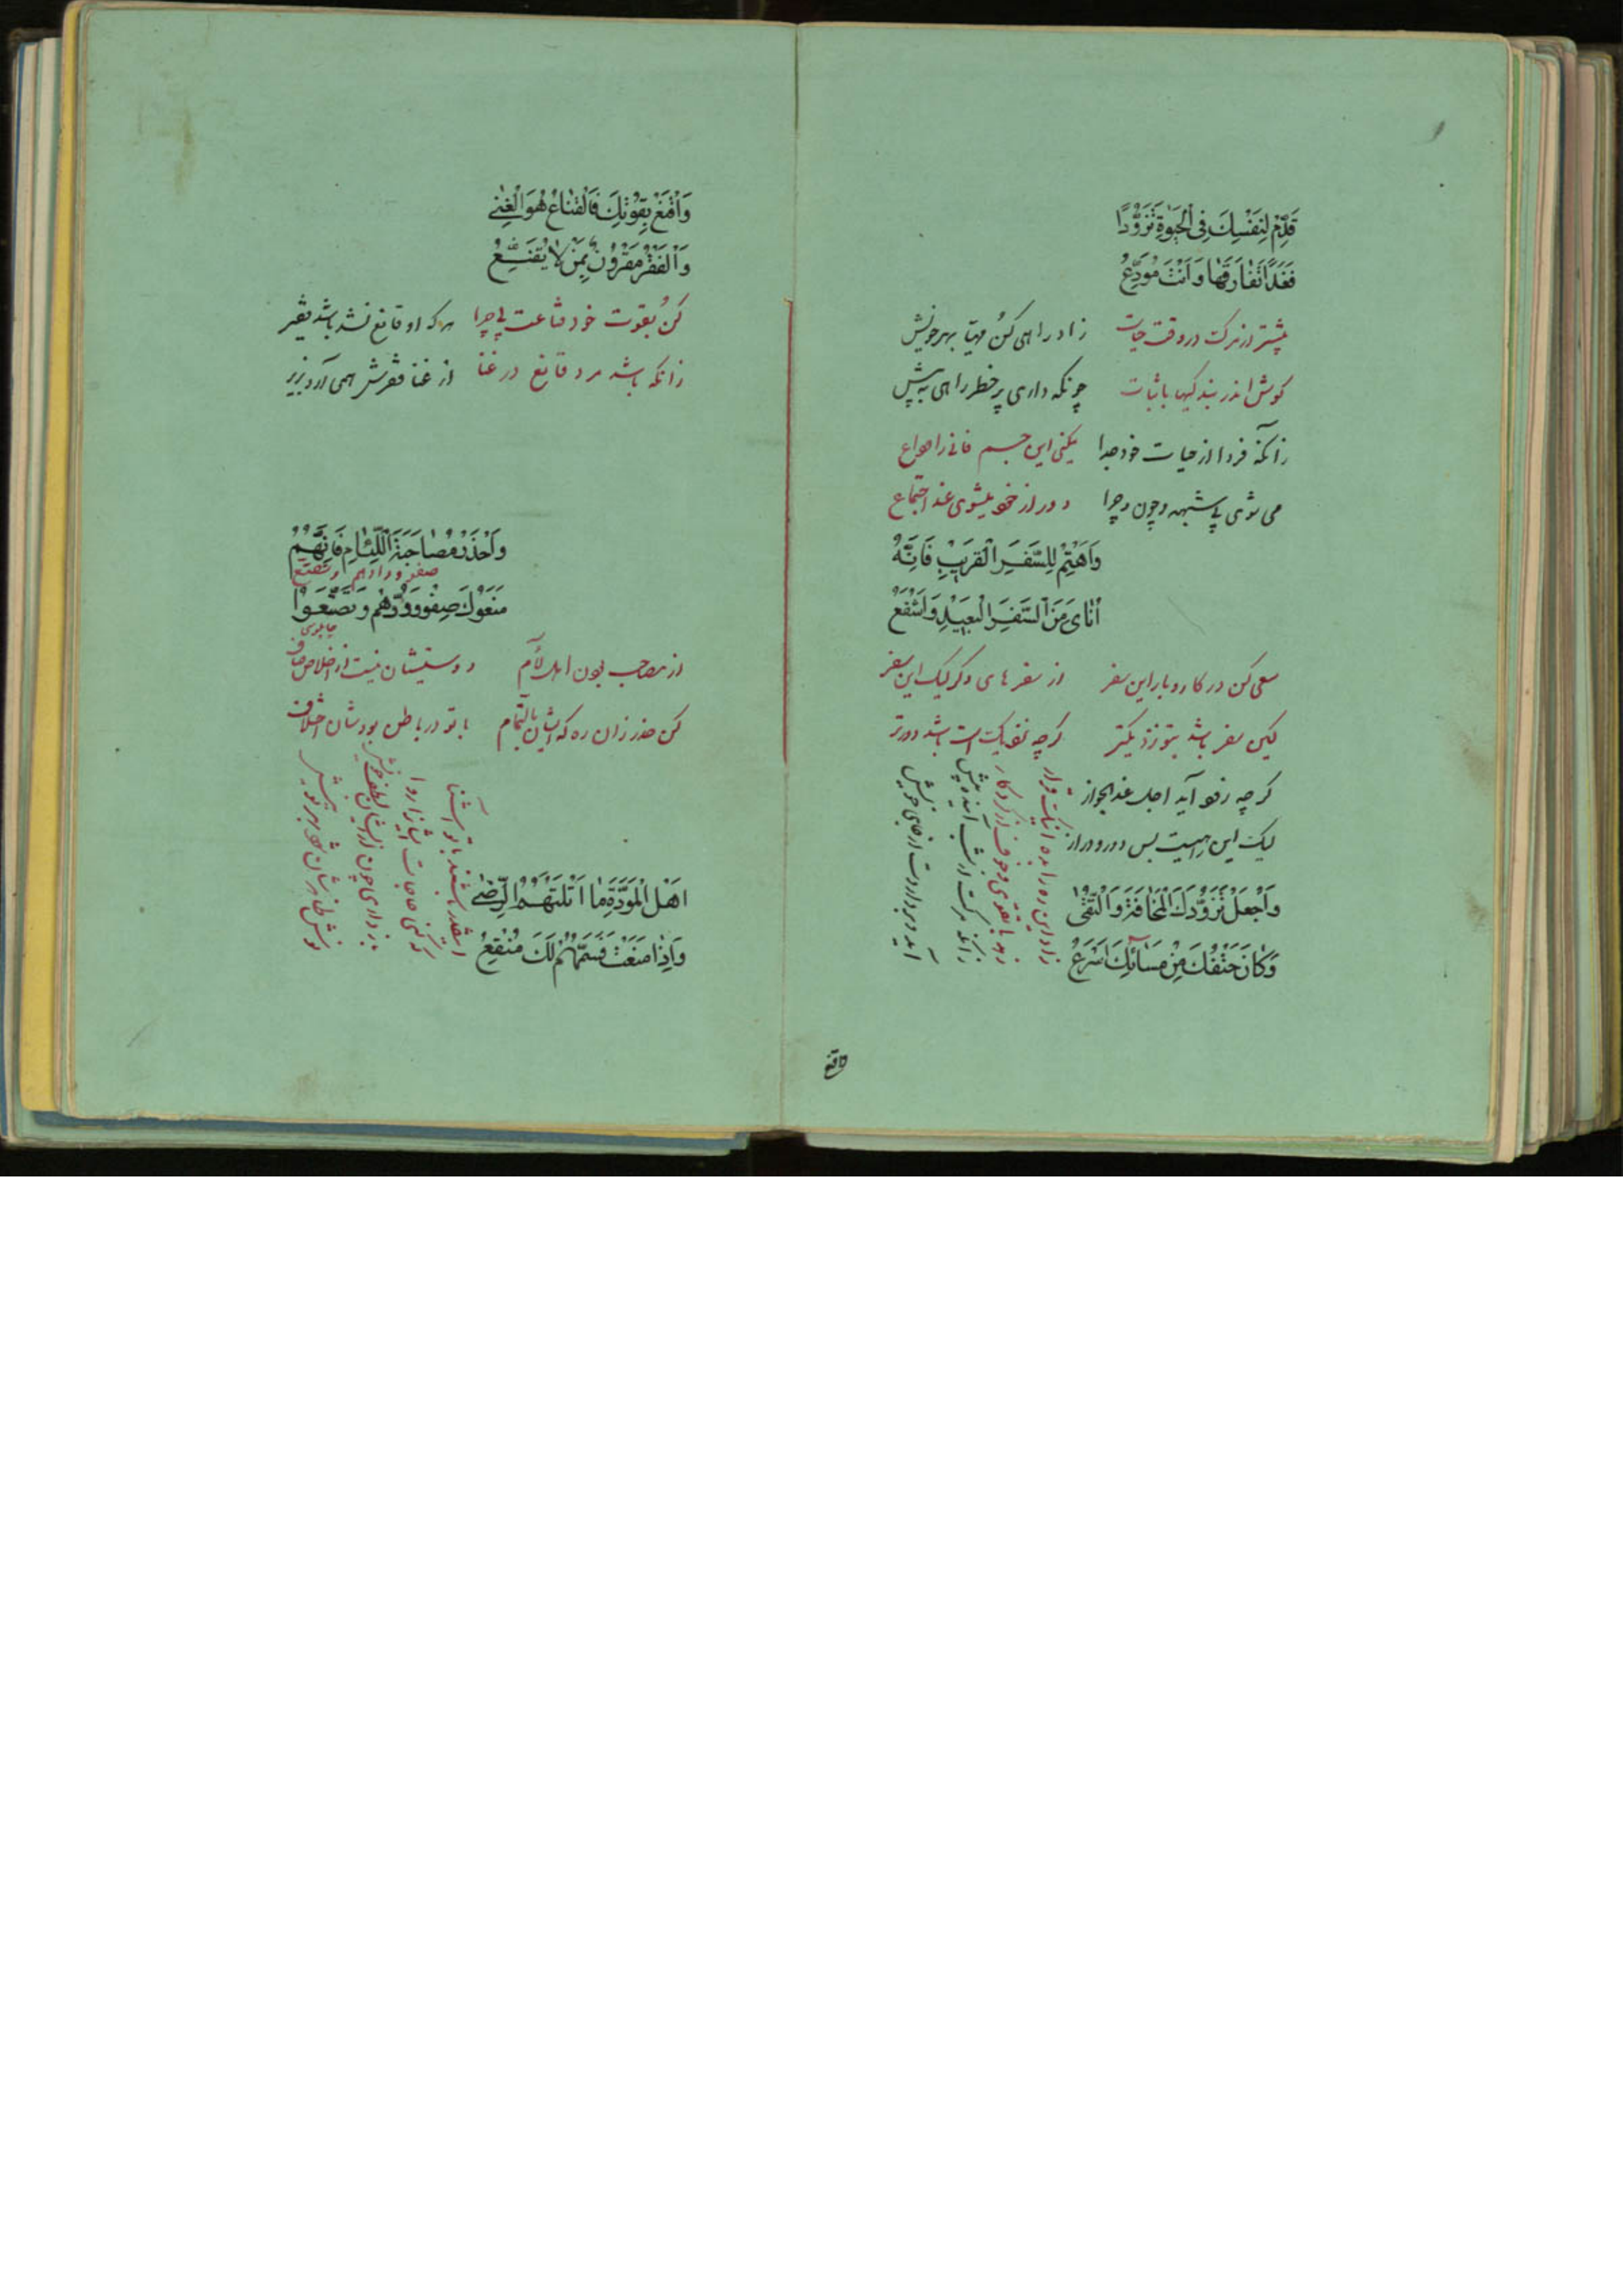 قَدِّمْ لِنَفْسِكَ فِى الْحَيٰوةِ تَزَوُّدًا
فَغَدًا تُفَارِقُهَا وَاَنْتَ مُوَدِّعُ
پیشتر از مرکت در وقت حیات زاد راهی کن مهیّا بهر خویش
کوش اندر بندکیها با ثبات چونکه داری پر خطر راهی به پیش
زآنکه فردا از حیات خود جدا یکنی این جسم فانی را وداع
می شوی بی شبهه و چون و چرا دور از خویشوی عند اجتماع
وَاهْتَمْ لِلسَّفَرِ الْقَرِيْبِ فَاِنَّهُ
اَنْاٰى مِنَ السَّفَرِ الْبَعِيْدِ وَاَشْفَعُ
سعی کن در کار و بار این سفر از سفر های دکر لیک این سفر
لیکن سفر باشد بتو نزدیکتر کرچه نزدیک است باشد دورتر
کرچه زود آید اجل عند الجواز
لیک این رهیست بس دور و دراز
وَاجْعَلْ تَزَوُّدَكَ الْمَخَافَةَ وَالتُّقٰى
وَكَانَ حَتْفُكَ مِنْ مَسَائِكَ اَسْرَعُ
زاد این ره را بده
زهد با تقوی و خوف از کردکار
زآنکه مرکت از شب آینده پیش
آید و بردارت از جای خویش
واقنع
وَاقْنَعْ بِقُوْتِكَ فَالْقَنَاعُ هُوَ الْغِنٰى
وَالْفَقْرُ مَقْرُوْنٌ بِمَنْ لَا يُقْنَعُ
کن بقوت خود قناعت بی چرا هر که او قانع نشد باشد فقیر
زانکه باشد مرد قانع در غنا از غنا فقرش همی آرد بزیر
وَاحْذَرْ مُصَاحَبَةَ اللِّئَامِ فَاِنَّهُمْ
صفو ودادهم وتصنع
مَنَعُوْكَ صِفْوَ وُدِّهُمْ وَتَصَنَّعُوْا
چاپلوسی
از مصاحب بودن اهل لآم دوستیشان نیست از اخلاص صاف
کن حذر زان ره که ایشان بالتمام با تو در باطن بودشان اختلاف
اَهْلُ الْمَوَدَّةِ مَا اَنَلْتَهُمُ الرِّضٰى
وَاِذَا مَنَعْتَ فَسَمُّهُمْ لَكَ مُنْقِعُ
اینقدر باشند با تو آشنا
که کنی حاجات ایشانرا روا
باز داری چون از ایشان لطف خویش